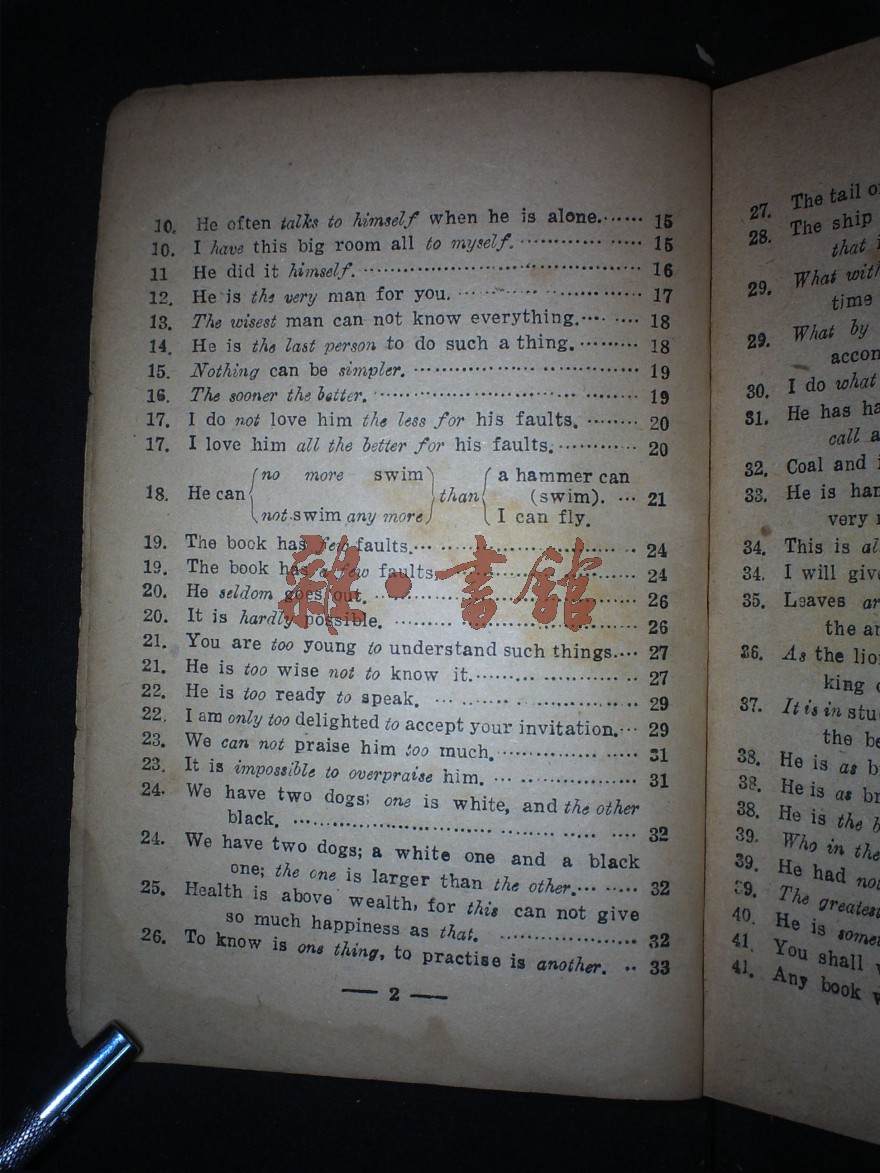 10. He often talks to himself when he is alone. ...... 15
10. I have this big room all to myself. ...... 15
11 He did it himself. ...... 16
12. He is the very man for you. ...... 17
13. The wisest man can not know everything. ...... 18
14. He is the last person to do such a thing. ...... 18
15. Nothing can be simpler. ...... 19
16. The sooner the better. ...... 19
17. I do not love him the less for his faults. ...... 20
17. I love him all the better for his faults. ...... 20
no more swim a hammer can
18. He can than (swim). ... 21
not swim any more I can fly.
19. The book has few faults. ...... 24
19. The book has a few faults. ...... 24
20. He seldom goes out. ...... 26
20. It is hardly possible. ...... 26
21. You are too young to understand such things. ... 27
21. He is too wise not to know it. ...... 27
22. He is too ready to speak. ...... 29
22. I am only too delighted to accept your invitation. ... 29
23. We can not praise him too much. ...... 31
23. It is impossible to overpraise him. ...... 31
24. We have two dogs; one is white, and the other
black. ...... 32
24. We have two dogs; a white one and a black
one; the one is larger than the other. ...... 32
25. Health is above wealth, for this can not give
so much happiness as that. ...... 32
26. To know is one thing, to practise is another. .. 33
— 2 —
雜·書館
27. The tail
28. The ship
that
29. What with
time
29. What by
accon
30. I do what
31. He has ha
call a
32. Coal and
33. He is har
very
34. This is al
34. I will giv
35. Leaves ar
the an
36. As the lio
king
37. It is in stu
the be
38. He is as b
38. He is as br
38. He is the b
39. Who in the
39. He had no
39. The greatest
40. He is some
41. You shall
41. Any book